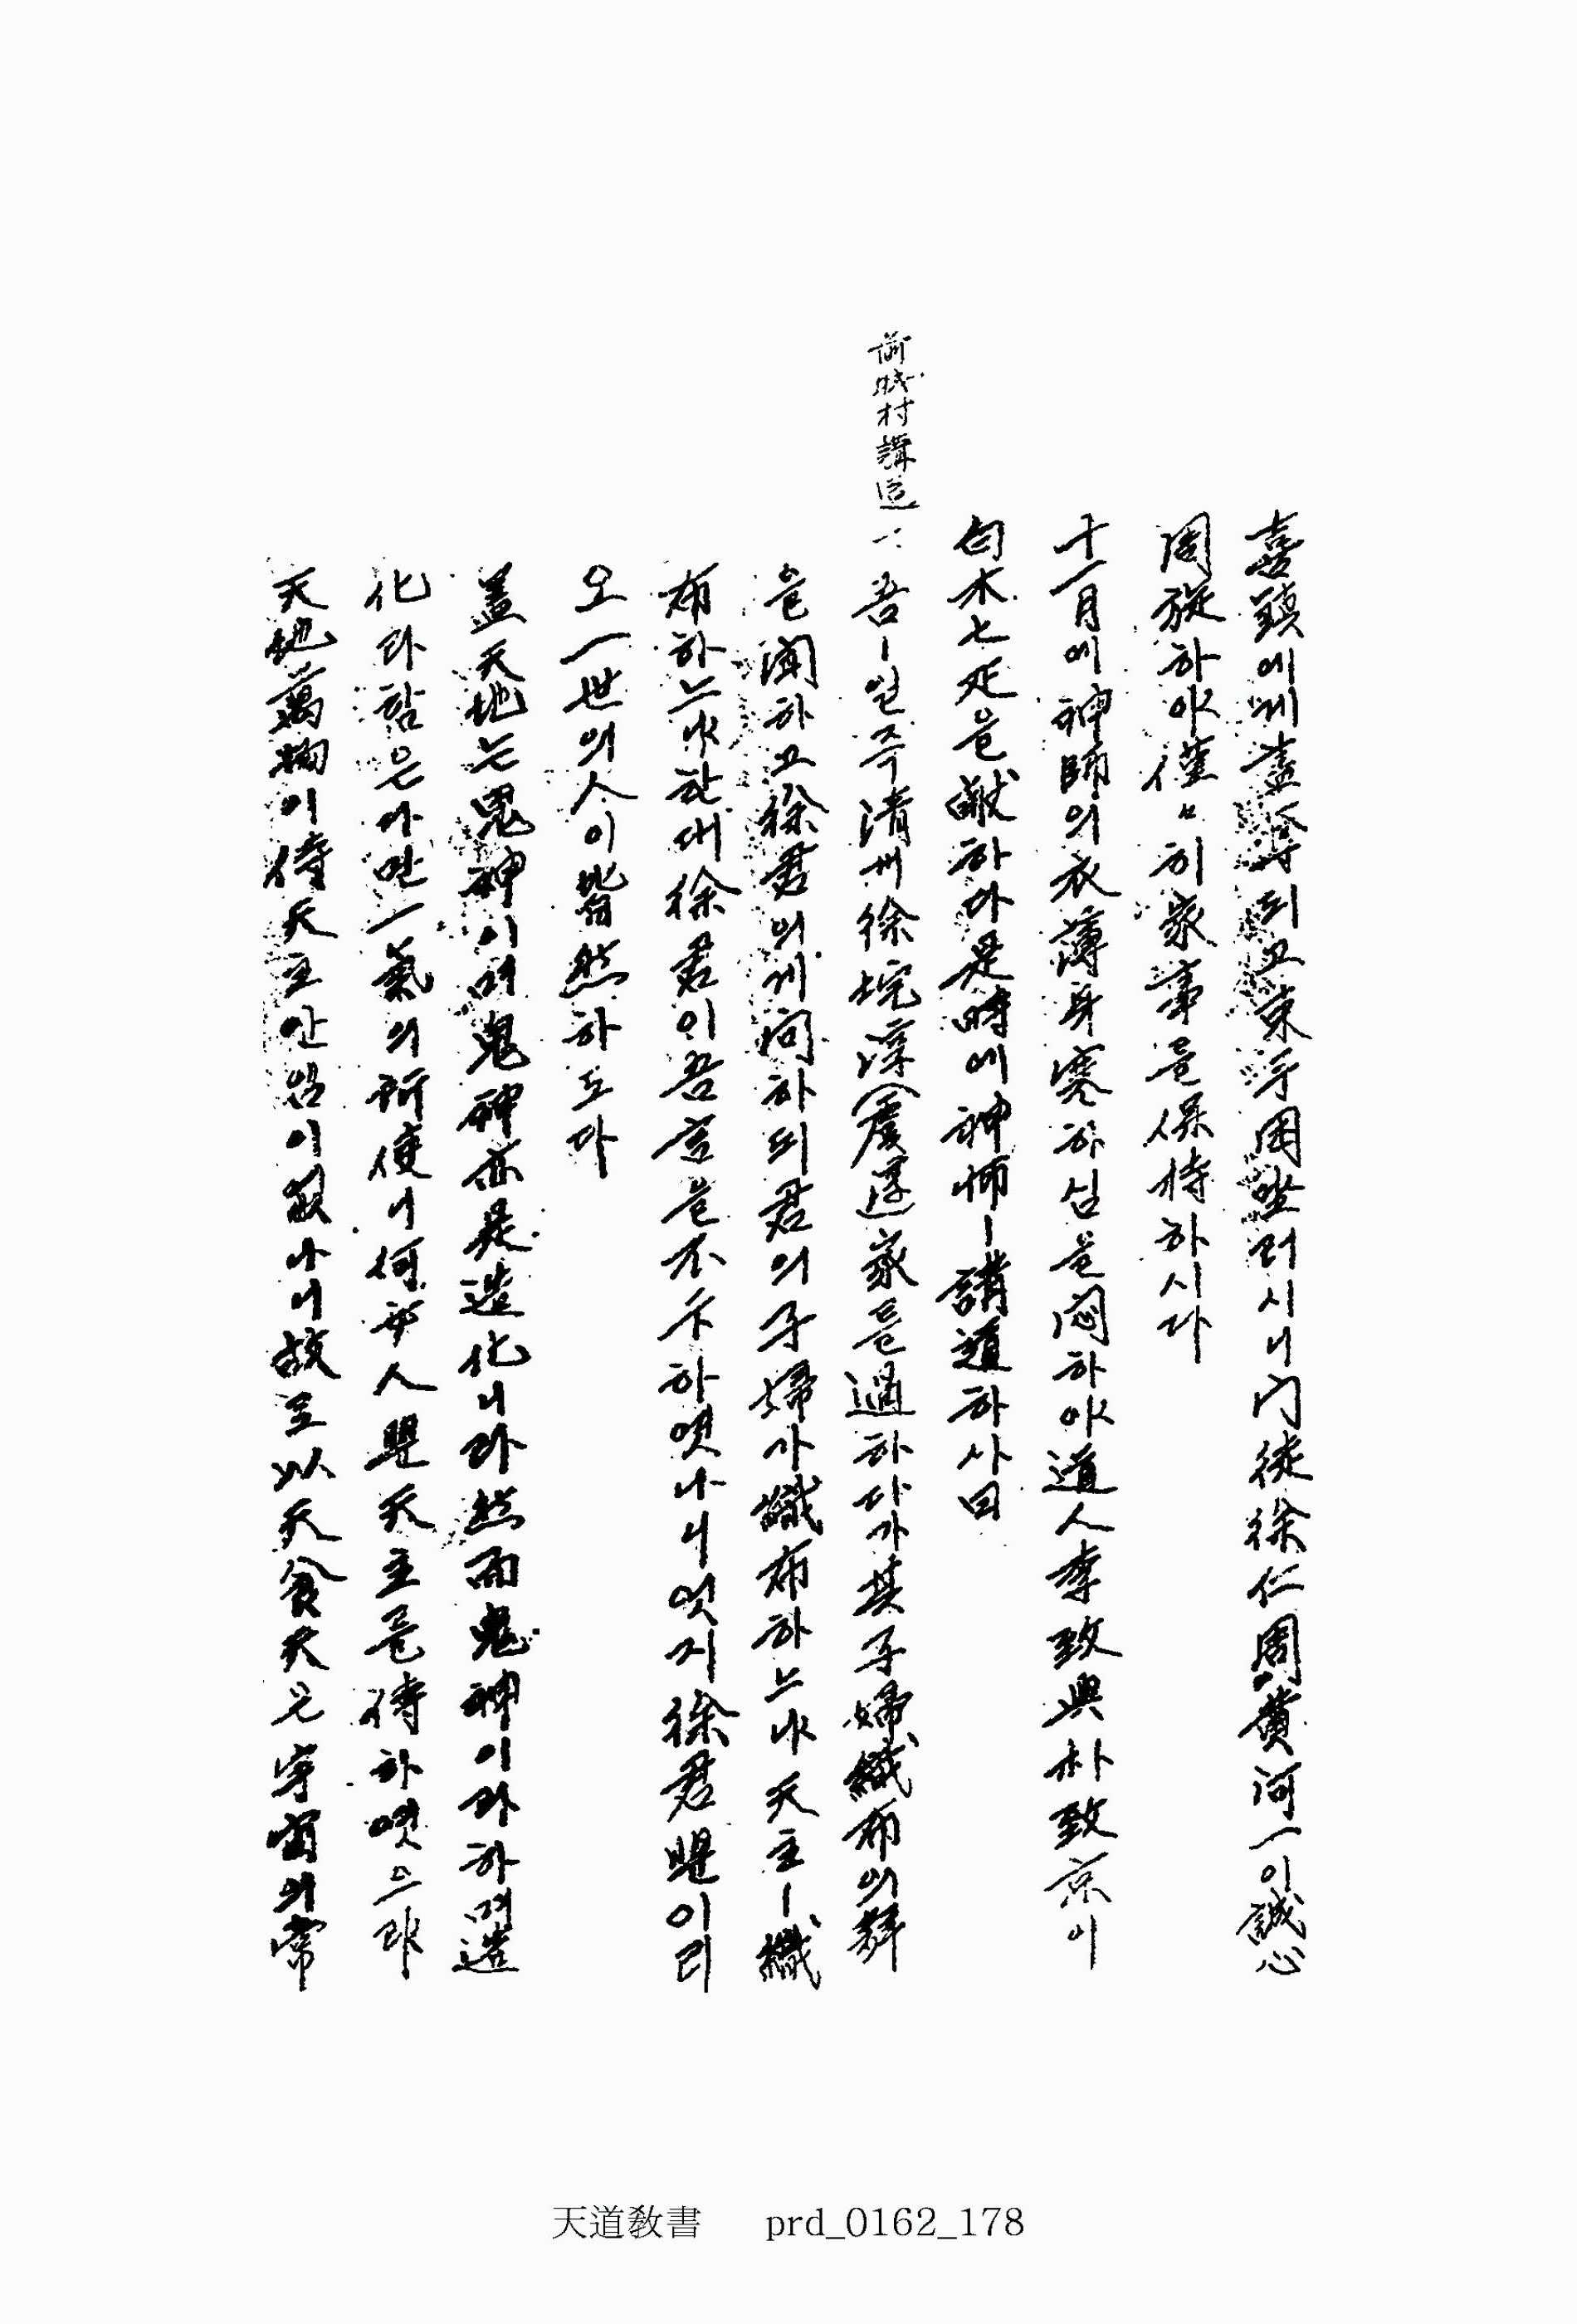 喜鎭에게盡奪되고束手困坐러시니門徒徐仁周黃河一이誠心
周旋하야僅々히家事를保持하시다
十一月에神師의衣薄身寒하심을悶하야道人李致興朴致京이
白木七疋을獻하다是時에神師ㅣ講道하사曰
前賤村講道
一 吾ㅣ일즉淸州徐垸淳(虞淳)家를過하다가其子婦織布의聲
을聞하고徐君의게問하되君의子婦가織布하느냐天主ㅣ織
布하느냐한대徐君이吾言을不卞하엿나니엇지徐君뿐이리
오一世의人이皆然하도다
盖天地는鬼神이며鬼神亦是造化니라然而鬼神이라하며造
化라함은다만一氣의所使니何必人뿐天主를侍하엿으랴
天地萬物이侍天主안임이업나니故로以天食天은宇宙의常
天道敎書 prd_0162_178